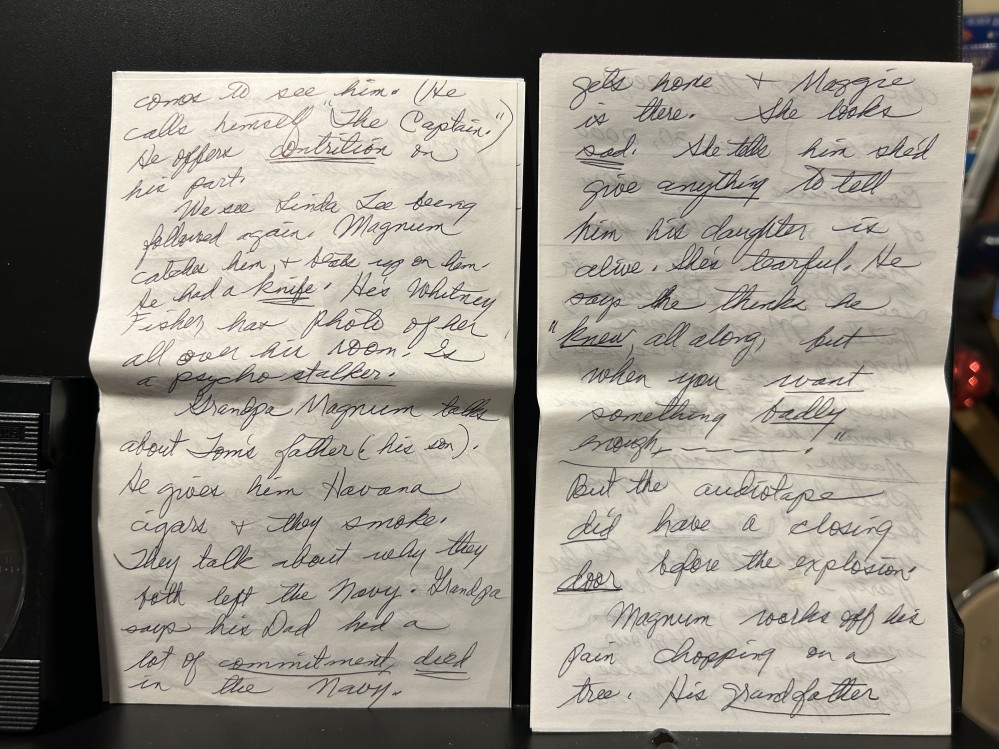 comes to see him. (He
calls himself "The Captain.")
He offers contrition on
his part.
We see Linda Lee being
followed again. Magnum
catches him & beats up on him.
He had a knife. He's Whitney
Fisher has photo of her
all over his room. Is
a psycho stalker.
Grandpa Magnum talks
about Tom's father (his son).
He gives him Havana
cigars & they smoke.
They talk about why they
both left the Navy. Grandpa
says his Dad had a
lot of commitment, died
in the Navy.
gets home & Maggie
is there. She looks
sad. She tells him she'd
give anything to tell
him his daughter is
alive. Shes tearful. He
says he thinks he
"knew, all along, but
when you want
something badly
enough, ———."
But the audiotape
did have a closing
door before the explosion.
Magnum works off his
pain chopping on a
tree. His grandfather